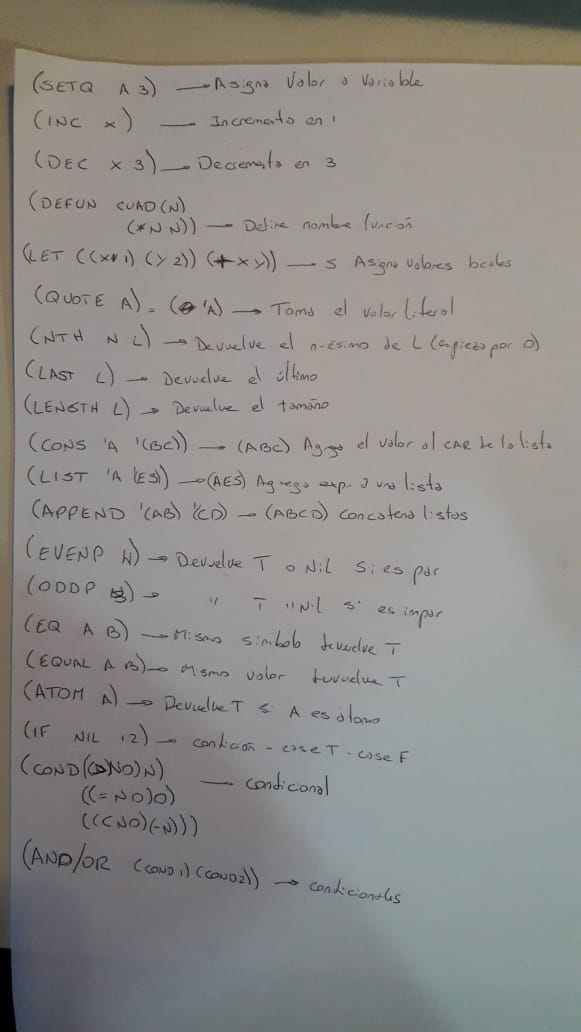 (SETQ A 3) → Asigna Valor a Variable
(INC x) — Incremento en 1
(DEC x 3) → Decremento en 3
(DEFUN CUAD(N)
(* N N)) → Define nombre función
(LET ((x 1) (y 2)) (+ x y)) → Asigna valores locales
(QUOTE A) = ('A) → Toma el valor literal
(NTH N L) → Devuelve el n-ésimo de L (empieza por 0)
(LAST L) → Devuelve el último
(LENGTH L) → Devuelve el tamaño
(CONS 'A '(BC)) → (ABC) Agrega el valor al CAR de la lista
(LIST 'A '(ES)) → (AES) Agrega exp. a una lista
(APPEND '(AB) '(CD) → (ABCD) concatena listas
(EVENP N) → Devuelve T o Nil si es par
(ODDP) → " T " Nil si es impar
(EQ A B) → Mismo simbolo devuelve T
(EQUAL A B) → Mismo valor devuelve T
(ATOM A) → Devuelve T si A es átomo
(IF NIL 1 2) → condición - case T - case F
(COND((> N 0) N) — condicional
((= N 0) 0)
((< N 0) (- N)))
(AND/OR (COND1) (COND2)) → condicionales